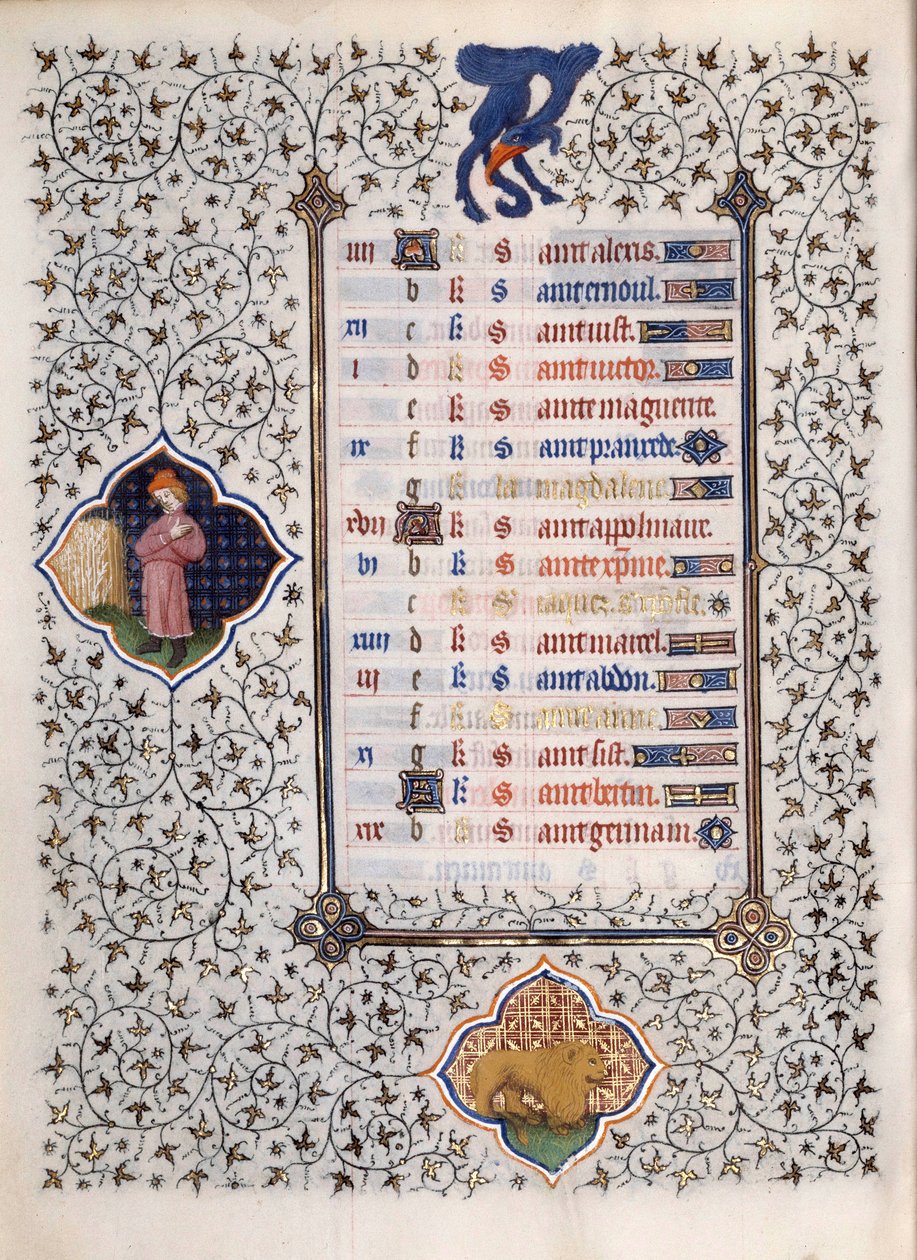 iiij A k Saint alexis.
b k Saint ernoul.
xij c k Saint iust.
i d k Saint victor.
e k Sainte maguerite.
ix f k Saint praxede.
g k La magdalene.
xvij A k Saint appolinaire.
vi b k Sainte xpine.
c k S iaques. xpofle.
xiiij d k Saint marcel.
iij e k Saint abdon.
f k Sainte anne.
xi g k Saint sist.
A k Saint bertin.
xix b k Saint germain.